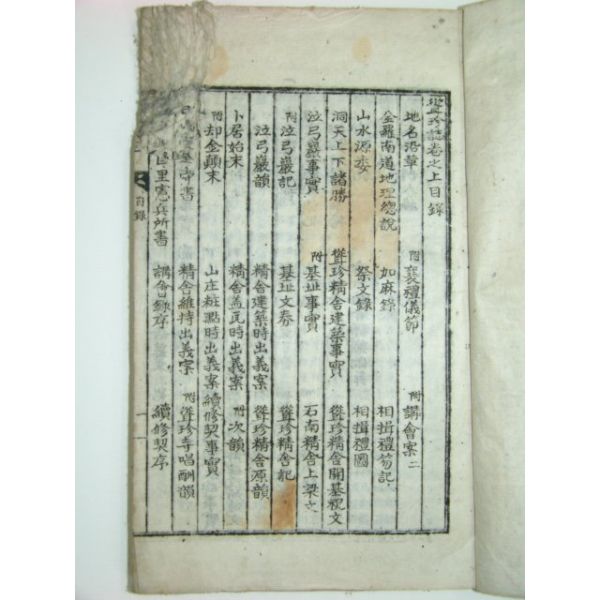 聳珍誌卷之上目錄
地名沿革 附喪禮儀節 附講會案二
全羅南道地理總說 加麻錄 相揖禮笏記
山水源委 祭文錄 相揖禮圖
洞天上下諸勝 聳珍精舍建築事實 聳珍精舍開基祝文
泣弓巖事實 附基址事實 石南精舍上梁文
附泣弓巖記 基址文券 聳珍精舍記
泣弓巖韻 精舍建築時出義案 聳珍精舍源韻
卜居始末 精舍盖瓦時出義案 附次韻
附却金顛末 山庄粧點時出義案 續修契事實
書 精舍維持出義案 附聳珍寺唱酬韻
里憲兵所書 講會錄序 續修契序
目錄
一